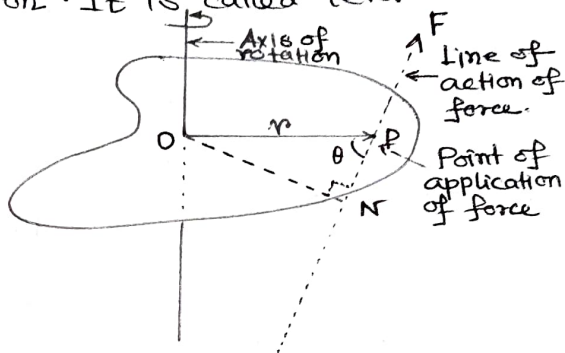 on. It is called
Axis of
rotation
F
Line of
action of
force.
O
r
P
θ
Point of
application
of force
N